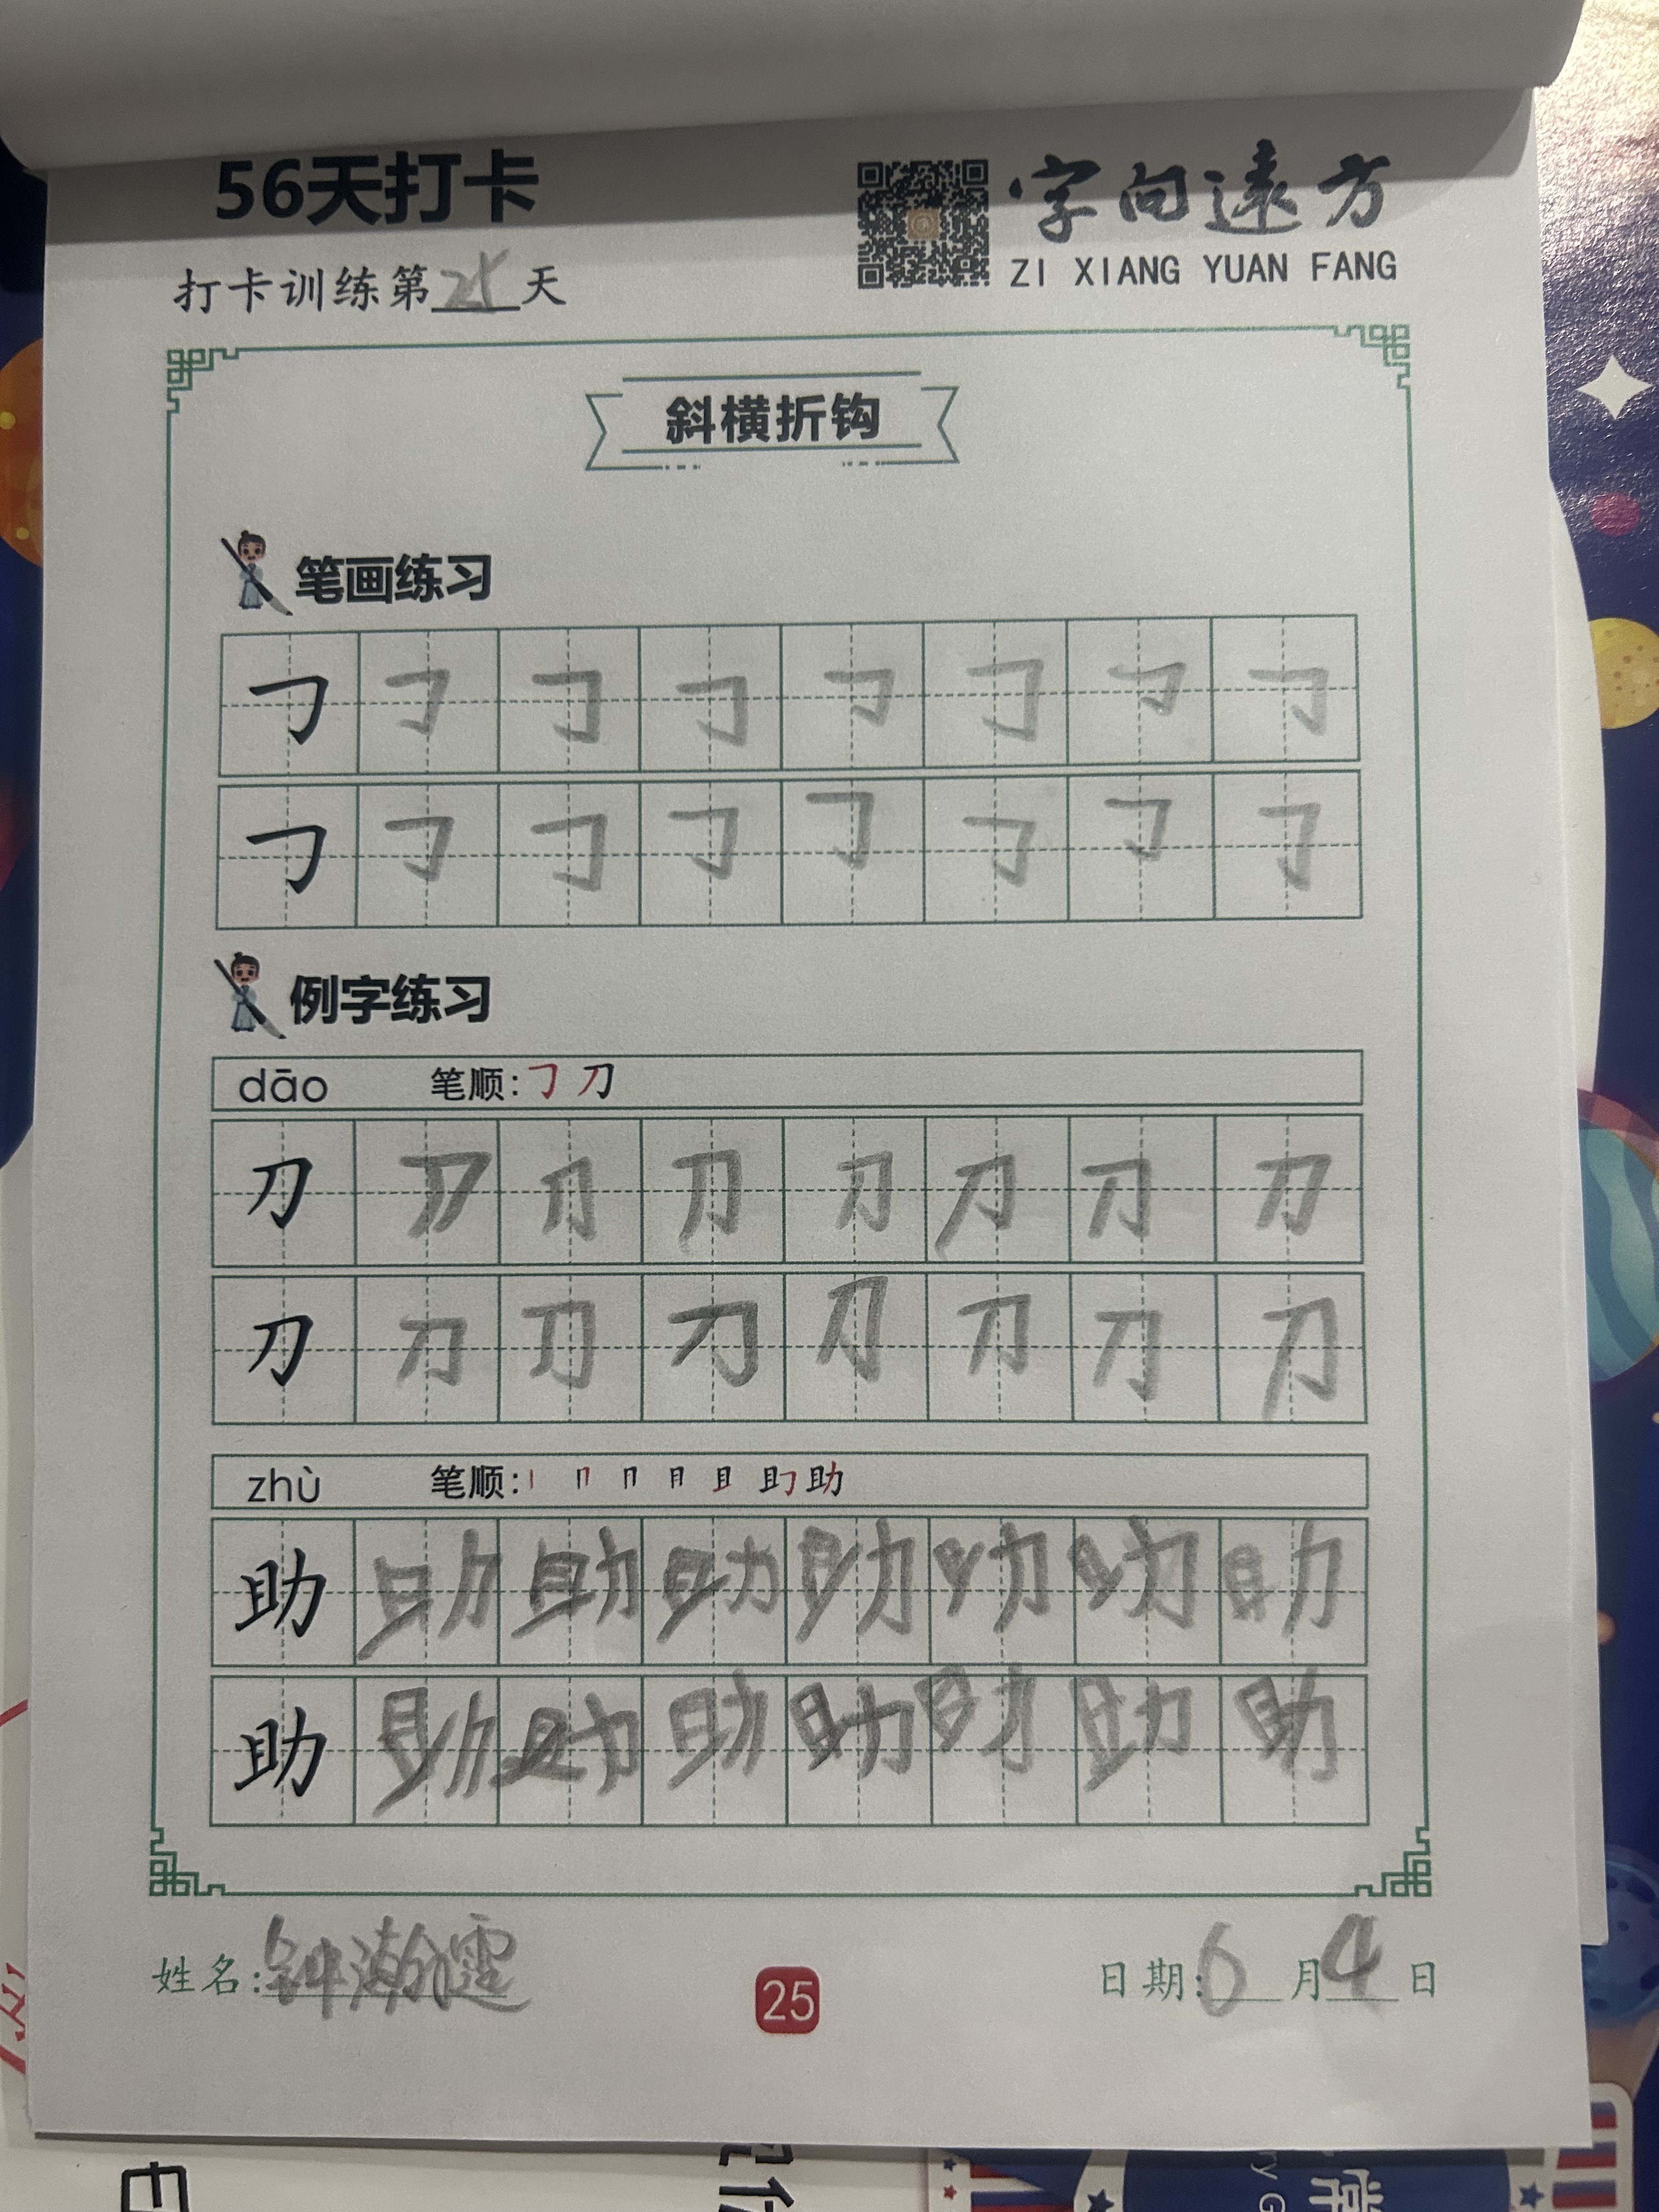 56天打卡
字向遠方
ZI XIANG YUAN FANG
打卡训练第25天
斜横折钩
笔画练习
𠃌 𠃌 𠃌 𠃌 𠃌 𠃌 𠃌 𠃌
𠃌 𠃌 𠃌 𠃌 𠃌 𠃌 𠃌 𠃌
例字练习
dāo 笔顺: 𠃌 刀
刀 刀 刀 刀 刀 刀 刀 刀
刀 刀 刀 刀 刀 刀 刀 刀
zhù 笔顺: 丨 冂 月 且 助
助 助 助 助 助 助 助 助
助 助 助 助 助 助 助 助
姓名:钟瀚霆
25
日期:6月4日
常